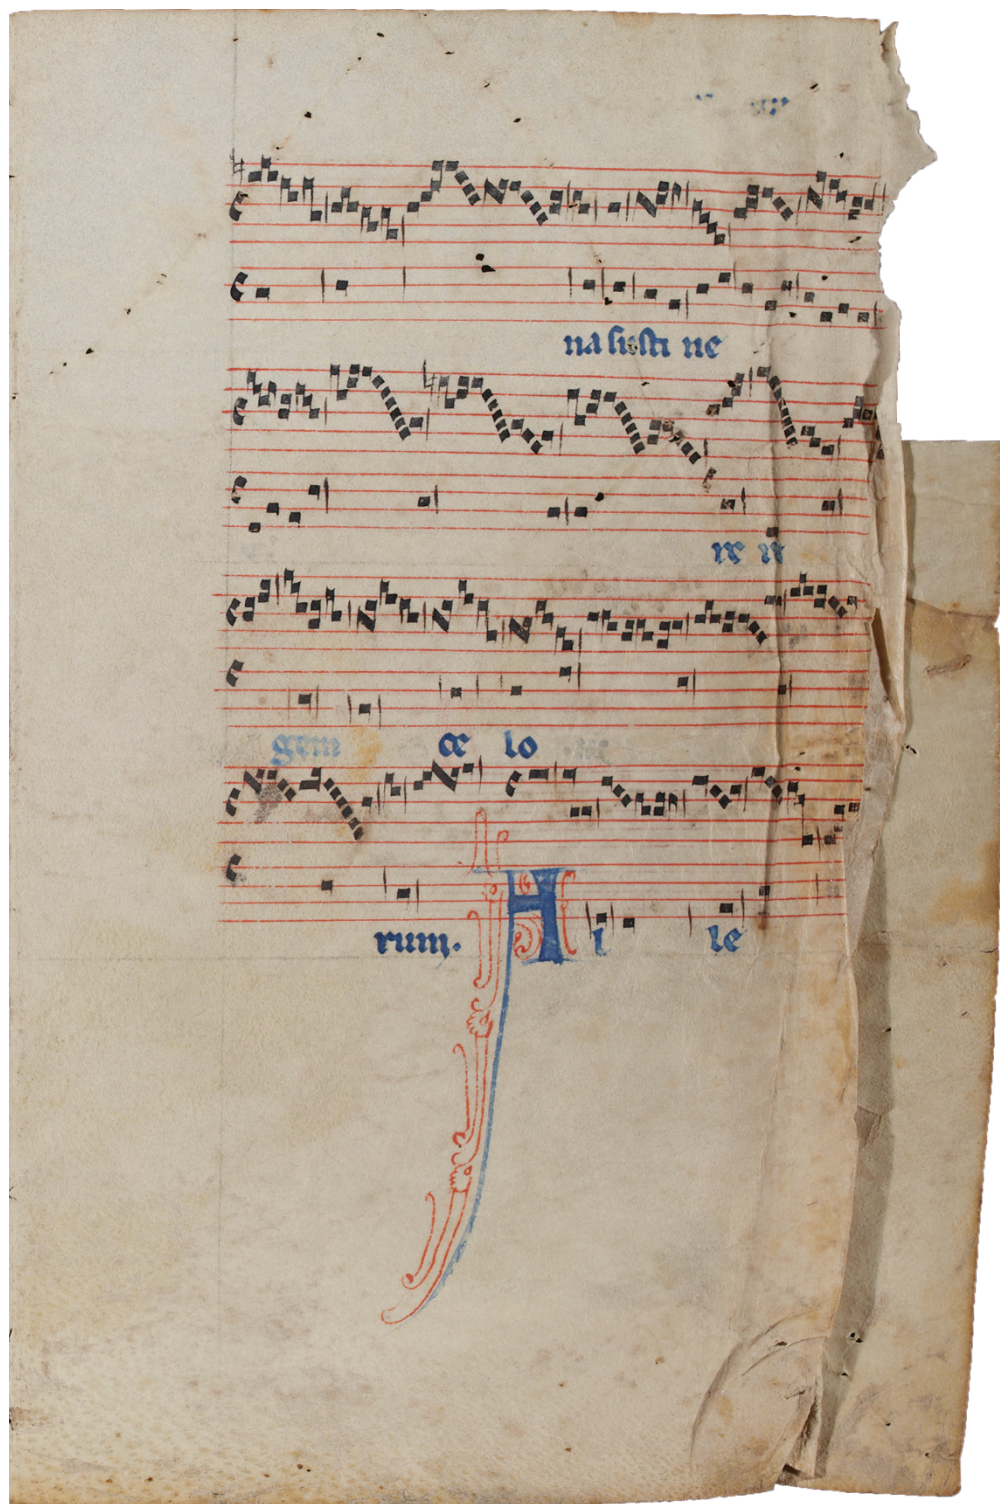 na susti ne
re re
gem ce lo
rum. A l le